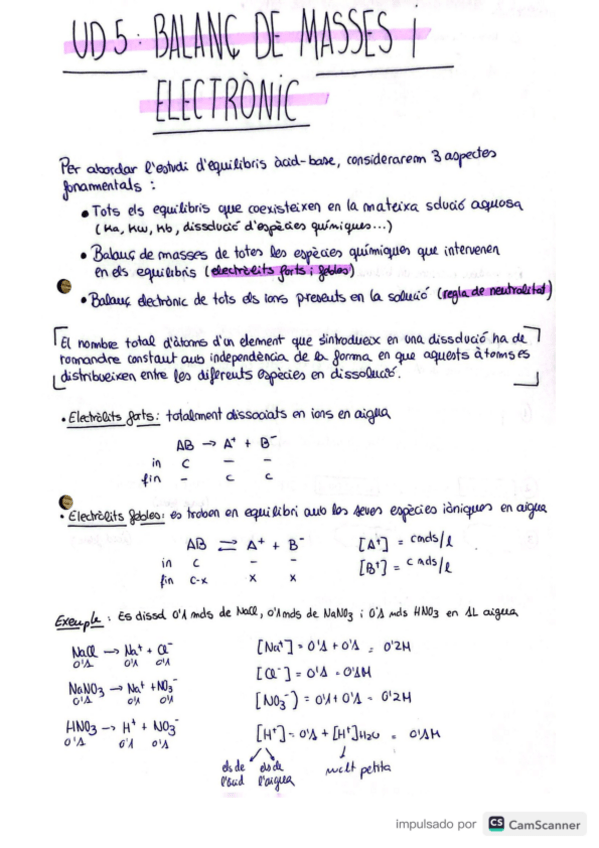 UD5: BALANÇ DE MASSES I
ELECTRÒNIC
Per abordar l'estudi d'equilibris àcid-base, considerarem 3 aspectes
fonamentals:
• Tots els equilibris que coexisteixen en la mateixa solució aquosa
(Ka, Kw, Kb, dissolució d'espècies químiques...)
• Balanç de masses de totes les espècies químiques que intervenen
en els equilibris (electròlits forts i febles)
• Balanç electrònic de tots els ions presents en la solució (regla de neutralitat)
El nombre total d'àtoms d'un element que s'introdueix en una dissolució ha de
romandre constant amb independència de la forma en que aquests àtoms es
distribueixen entre les diferents espècies en dissolució.
• Electròlits forts: totalment dissociats en ions en aigua
AB → A⁺ + B⁻
in c – –
fin – c c
• Electròlits febles: es troben en equilibri amb les seves espècies iòniques en aigua
AB ⇌ A⁺ + B⁻ [A⁺] = c mols/l
in c – – [B⁺] = c mols/l
fin c-x x x
Exemple: Es dissol 0'1 mols de NaCl, 0'1 mols de NaNO₃ i 0'1 mols HNO₃ en 1L aigua
NaCl → Na⁺ + Cl⁻ [Na⁺] = 0'1 + 0'1 = 0'2M
0'1 0'1 0'1 [Cl⁻] = 0'1 = 0'1M
NaNO₃ → Na⁺ + NO₃⁻
0'1 0'1 0'1 [NO₃⁻) = 0'1 + 0'1 = 0'2M
HNO₃ → H⁺ + NO₃⁻ [H⁺] = 0'1 + [H⁺]H₂O = 0'1M
0'1 0'1 0'1
els de els de molt petita
l'àcid l'aigua
impulsado por CS CamScanner